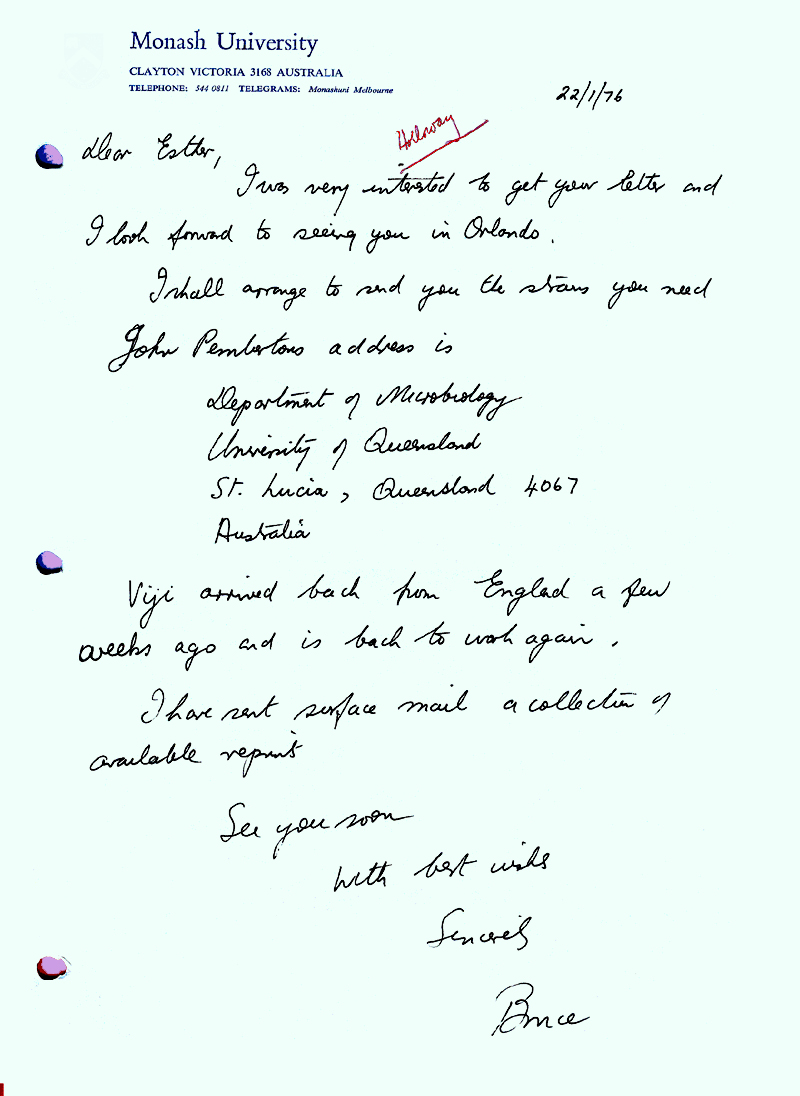 Monash University
CLAYTON VICTORIA 3168 AUSTRALIA
TELEPHONE: 544 0811 TELEGRAMS: Monashuni Melbourne
22/1/76
Holloway
Dear Esther,
I was very interested to get your letter and
I look forward to seeing you in Orlando.
I shall arrange to send you the strains you need
John Pembertons address is
Department of Microbiology
University of Queensland
St. Lucia, Queensland 4067
Australia
Viji arrived back from England a few
weeks ago and is back to work again.
I have sent surface mail a collection of
available reprints
See you soon
With best wishes
Sincerely
Bruce